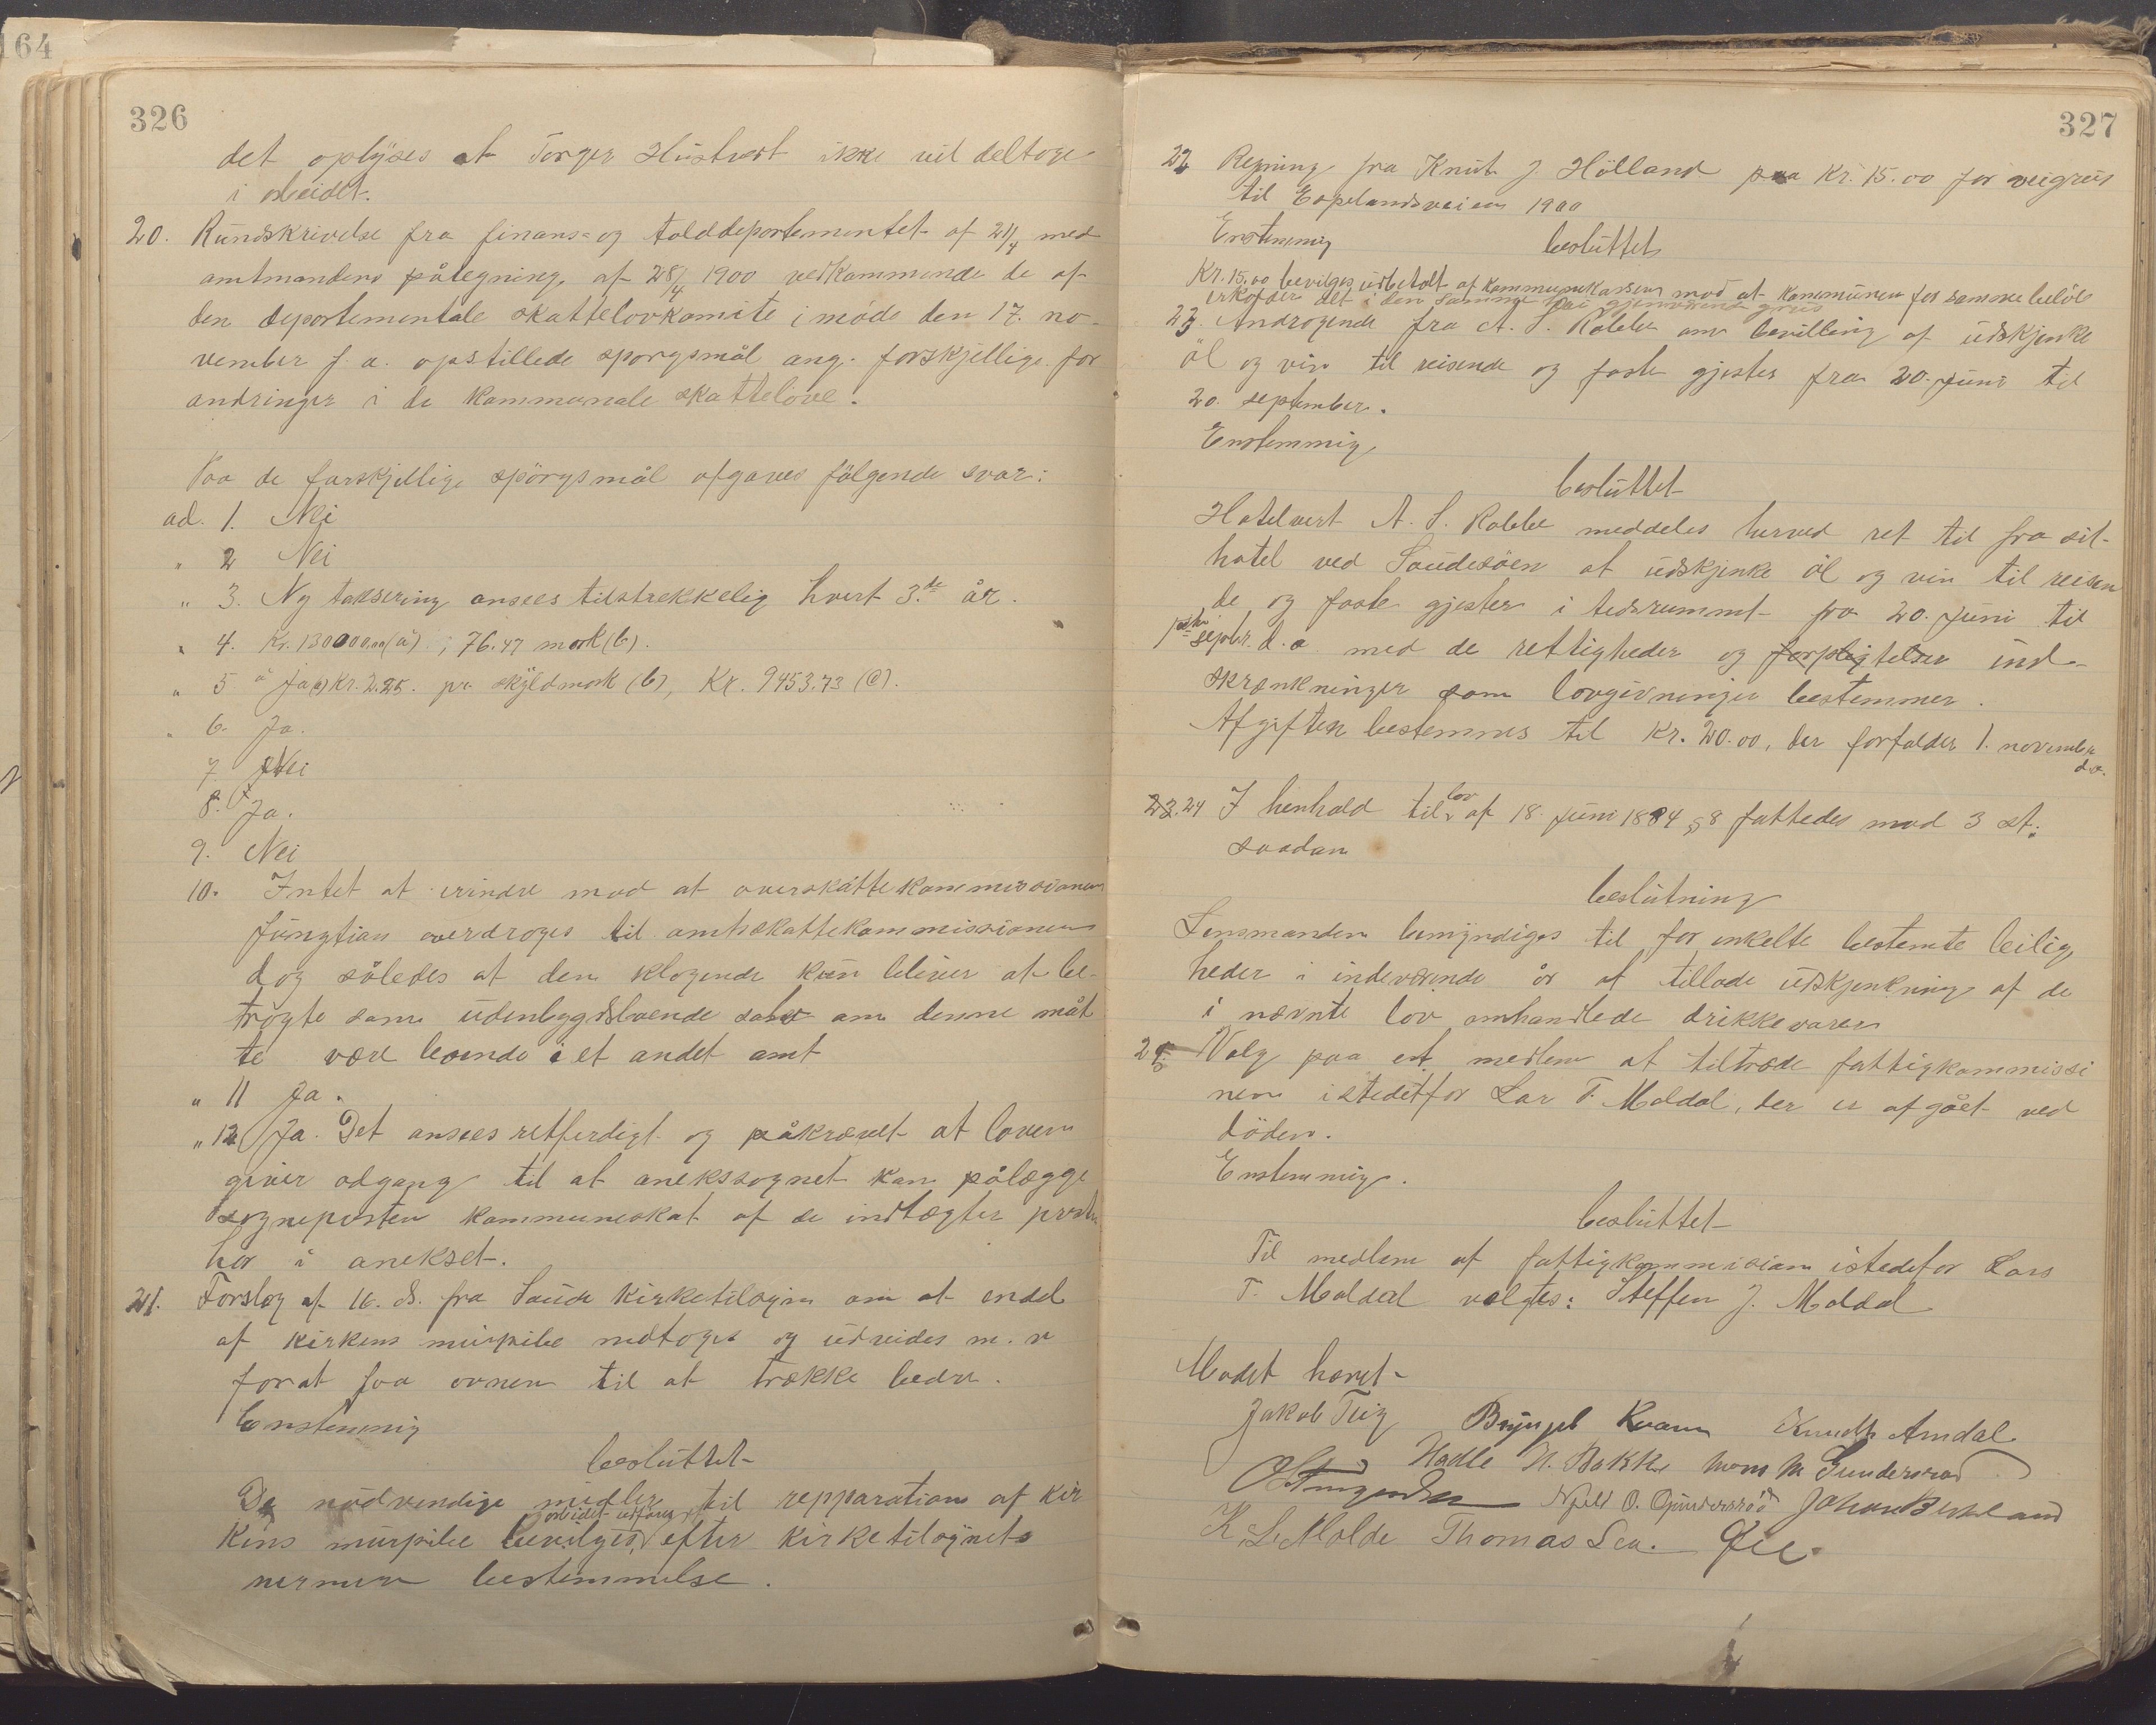 64
326
det oplÿses at Torger Hustvet ikke vil deltage
i arbeidet.
20. Rundskrivelse fra finans- og tolddepartementet af 21/4 med
amtmandens påtegning af 28/4 1900 vedkommende de af
den departementale skattelovkomite i møde den 17. no-
vember f. a. opstillede spørgsmål ang. forskjellige for
andringer i de kommunale skattelove.
Paa de forskjellige spörgsmål afgaves fölgende svar:
ad. 1. Nei
" 2 Nei
" 3. Ny taksering ansees tilstrekkelig hvert 3.de år.
" 4. Kr. 130000,00 (a) ; 76.47 mark (b).
" 5 Ja (a) Kr. 2.25. pr. skÿldmark (b), Kr. 9453.73 (c).
" 6. Ja.
7. Nei
8. Ja.
9. Nei
10. Intet at erindre mod at overskattekommissionens
fungtion overdroges til amtskattekommissionen
dog således at den klagende kun bliver at be-
tragte som udenbygdsboende selv om denne måt
te være boende i et andet amt
" 11 Ja.
" 12 Ja. Det ansees retferdigt og påkrævet at loven
giver adgang til at anekssognet kan pålægge
sognepresten kommuneskat af de indtægter presten
har i anekset.
21. Forslag af 16. ds. fra Saude kirketilsÿn om at endel
af kirkens murpibe nedtoges og udvides m. v
forat faa ovnen til at trække bedre.
Enstemmig
besluttet
De nødvendige midler til repparation af kir
arbeidet udføres
kens murpibe bevilges, efter kirketilsÿnets
nermere bestemmelse.
327
22 Regning fra Knut J. Hölland paa Kr. 15.00 for veigrus
til Espelandsveien 1900
Enstemmig besluttet
Kr. 15.00 bevilges udbetalt af kommunekassen mod at kommunen for samme beløb
23. Andragende fra A. S. Rabbe om bevilling af udskjenke
öl og vin til reisende og faste gjester fra 20. Juni til
20. september.
Enstemmig
besluttet
Hotelvert A. S. Rabbe meddeles herved ret til fra sit
hotel ved Saudesöen at udskjenke öl og vin til reisen
de og faste gjester i tidsrummet fra 20. Juni til
septbr. d. a med de rettigheder og forpligtelser ind-
skrænkninger som lovgivningen bestemmer.
Afgiften bestemmes til Kr. 20.00, der forfalder 1. november
d.a.
23. 24 I henhold til lov af 18. Juni 1884 § 8 fattedes mod 3 st.
saadan
beslutning
Lensmanden bemÿndiges til for enkelte bestemte leilig
heder i indeværende år at tillade udskjenkning af de
i nævnte lov omhandlede drikkevarer
25. Valg paa et medlem at tiltræde fattigkommissi
nen istedetfor Lar T. Moldal, der er afgået ved
döden.
Enstemmig.
besluttet
Til medlem af fattigkommision istedefor Lars
T. Moldal valgtes: Steffen J. Moldal
Mødet hævet
Jakob Tig Brynjel Kvam Knudtz Amdal
Hadle N. Bakke Mons M Gundersrød
Njell O. Gundersröd Johan Birkeland
K. L. Molde Thomas Lea.